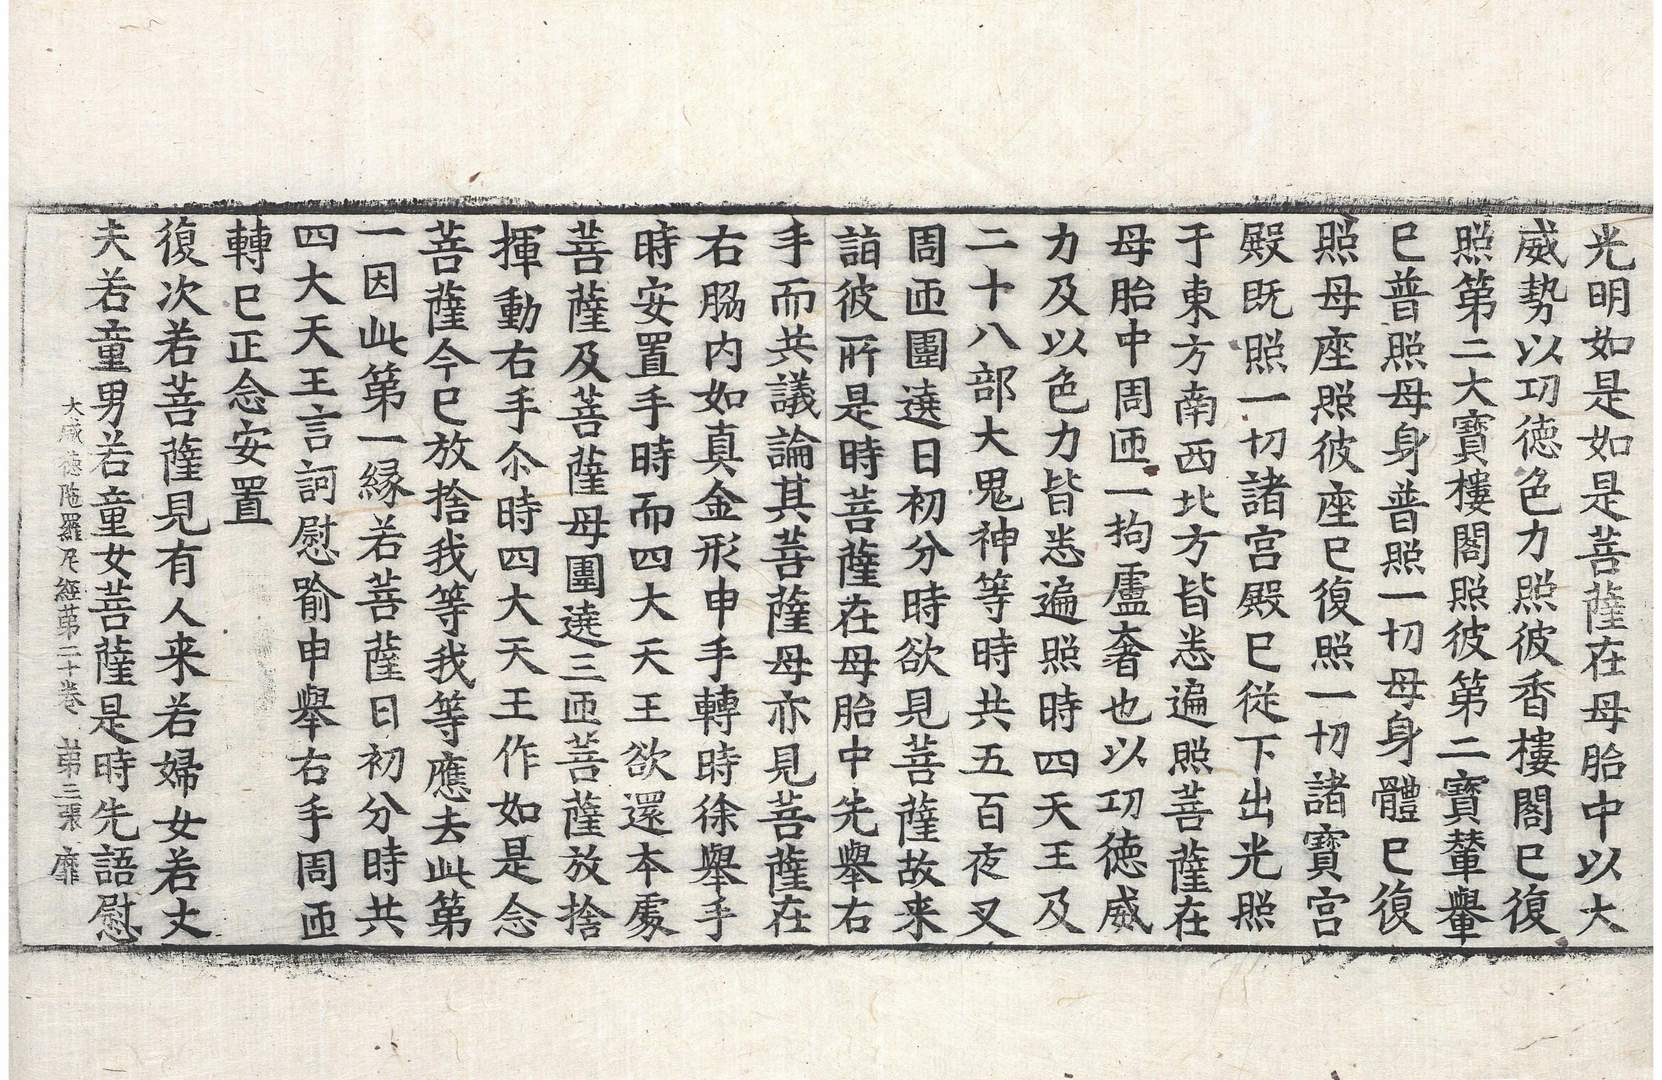 光明如是如是菩薩在母胎中以大
威勢以功徳色力照彼香樓閣已復
照第二大寶樓閣照彼第二寶輦轝
已普照母身普照一切母身體已復
照母座照彼座已復照一切諸寶宮
殿既照一切諸宮殿已従下出光照
于東方南西北方皆悉遍照菩薩在
母胎中周匝一拘盧奢也以功徳威
力及以色力皆悉遍照時四天王及
二十八部大鬼神等時共五百夜叉
周匝圍遶日初分時欲見菩薩故来
詣彼所是時菩薩在母胎中先舉右
手而共議論其菩薩母亦見菩薩在
右脇内如真金形申手轉時徐舉手
時安置手時而四大天王欲還本處
菩薩及菩薩母圍遶三匝菩薩放捨
揮動右手尒時四大天王作如是念
菩薩今已放捨我等我等應去此第
一因此第一緣若菩薩日初分時共
四大天王言訶慰喻申舉右手周匝
轉已正念安置
復次若菩薩見有人来若婦女若丈
夫若童男若童女菩薩是時先語慰
大威徳陁羅尼經苐二十卷 苐三張 靡